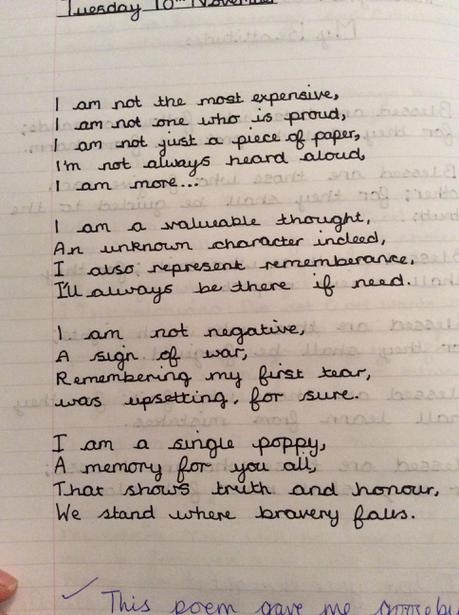 Tuesday 10th November
I am not the most expensive,
I am not one who is proud,
I am not just a piece of paper,
I'm not always heard aloud,
I am more...
I am a valueable thought,
An unknown character indeed,
I also represent rememberance,
I'll always be there if need.
I am not negative,
A sign of war,
Remembering my first tear,
was upsetting, for sure.
I am a single poppy,
A memory for you all,
That shows truth and honour,
We stand where bravery falls.
This poem gave me